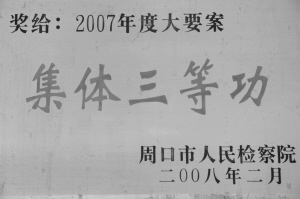 奖给：2007年度大要案
集体三等功
周口市人民检察院
二00八年二月